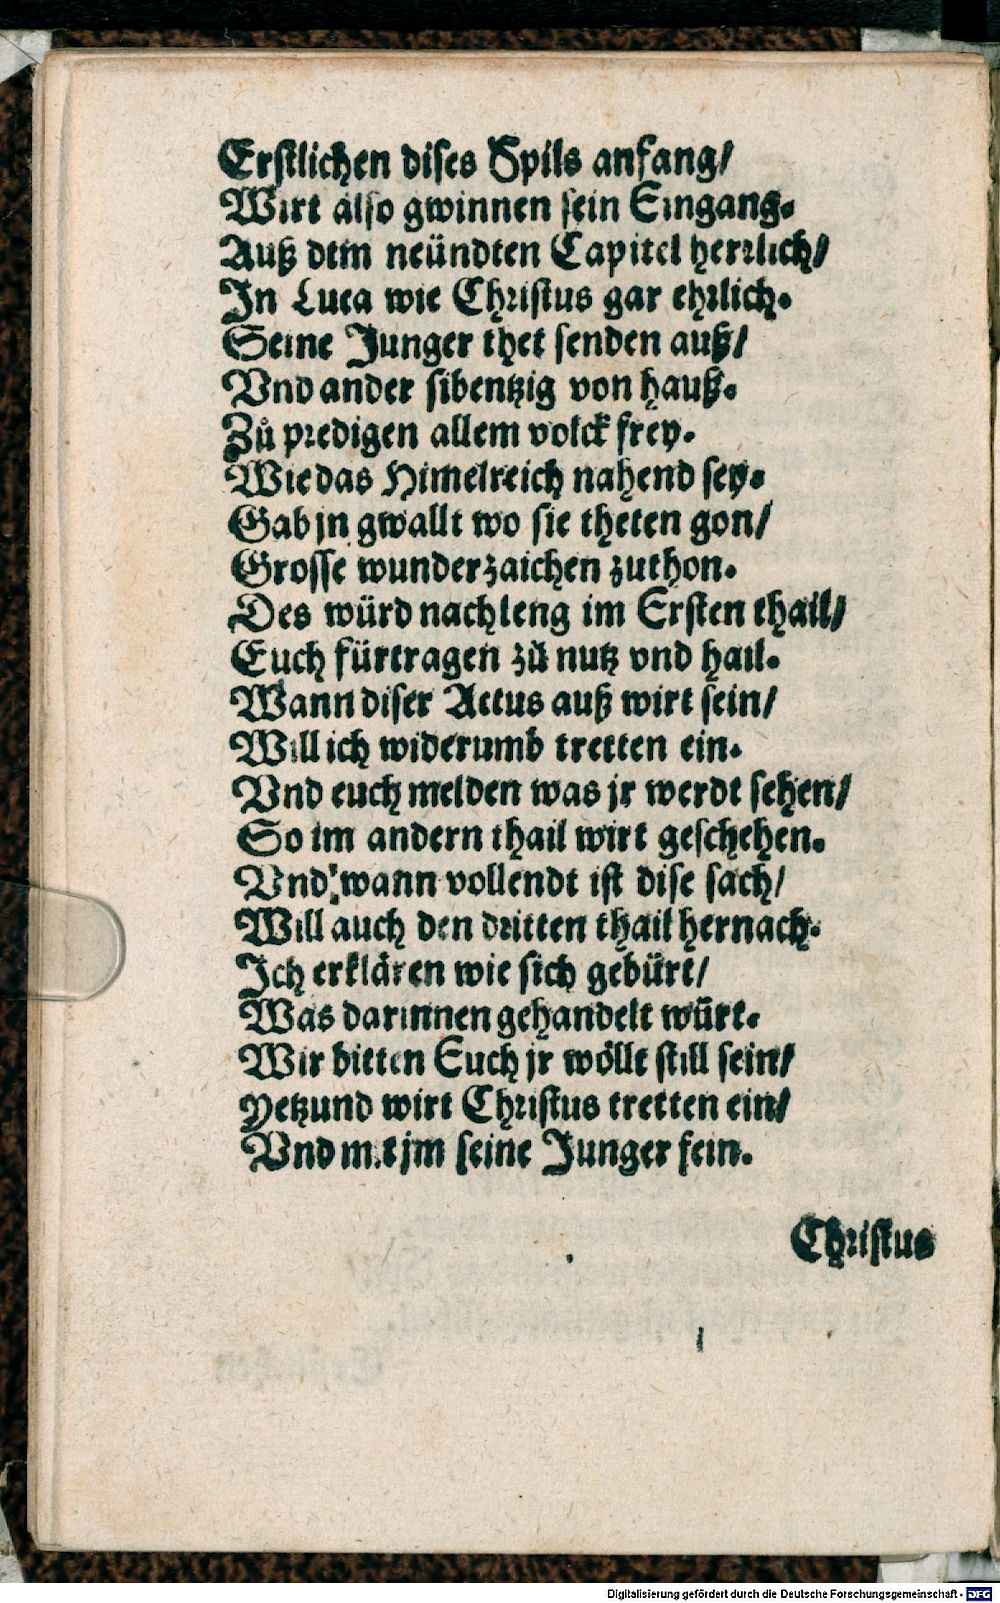 Erstlichen dises Spils anfang/
Wirt also gwinnen sein Eingang.
Auß dem neündten Capitel herrlich/
In Luca wie Christus gar ehrlich.
Seine Junger thet senden auß/
Vnd ander sibentzig von hauß.
Zů predigen allem volck frey.
Wie das Himelreich nahend sey.
Gab jn gwallt wo sie theten gon/
Grosse wunderzaichen zuthon.
Des würd nachleng im Ersten thail/
Euch fürtragen zů nutz vnd hail.
Wann diser Actus auß wirt sein/
Will ich widerumb tretten ein.
Vnd euch melden was jr werdt sehen/
So im andern thail wirt geschehen.
Vnd wann vollendt ist dise sach/
Will auch den dritten thail hernach.
Ich erklären wie sich gebürt/
Was darinnen gehandelt würt.
Wir bitten Euch jr wöllt still sein/
Yetzund wirt Christus tretten ein/
Vnd mit jm seine Junger fein.
Christus
Digitalisierung gefördert durch die Deutsche Forschungsgemeinschaft - DFG